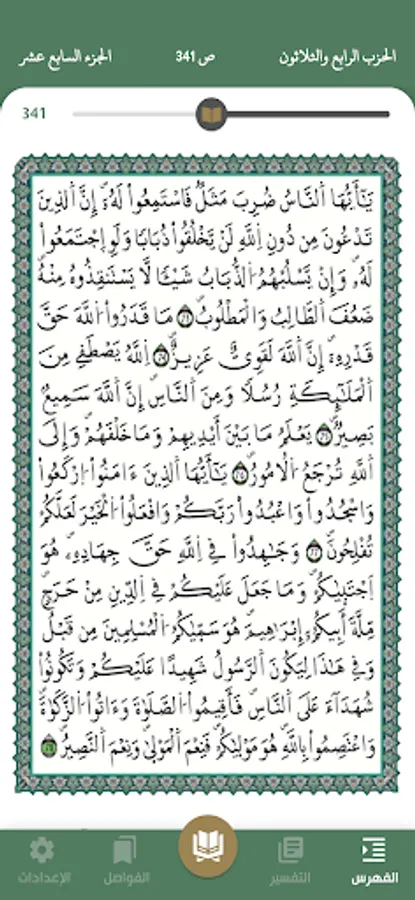 الحزب الرابع والثلاثون
ص 341
الجزء السابع عشر
341
يَٰٓأَيُّهَا اَ۬لنَّاسُ ضُرِبَ مَثَلٞ فَاسْتَمِعُواْ لَهُۥٓۖ إِنَّ اَ۬لذِينَ
تَدْعُونَ مِن دُونِ اِ۬للَّهِ لَنْ يَّخْلُقُواْ ذُبَابٗا وَلَوِ اِ۪جْتَمَعُواْ
لَهُۥۖ وَإِنْ يَّسْلُبْهُمُ اُ۬لذُّبَابُ شَيْـٔٗا لَّا يَسْتَنقِذُوهُ مِنْهُۖ
ضَعُفَ اَ۬لطَّالِبُ وَالْمَطْلُوبُۖ مَا قَدَرُواْ اُ۬للَّهَ حَقَّ
قَدْرِهِۦٓۖ إِنَّ اَ۬للَّهَ لَقَوِيٌّ عَزِيزٌۖ اِ۬للَّهُ يَصْطَفِے مِنَ
اَ۬لْمَلَٰٓئِكَةِ رُسُلٗا وَمِنَ اَ۬لنَّاسِۖ إِنَّ اَ۬للَّهَ سَمِيعُۢ
بَصِيرٞۖ يَعْلَمُ مَا بَيْنَ أَيْدِيهِمْ وَمَا خَلْفَهُمْۖ وَإِلَى
اَ۬للَّهِ تُرْجَعُ اُ۬لْأُمُورُۖ يَٰٓأَيُّهَا اَ۬لذِينَ ءَامَنُواْ اُ۪رْكَعُواْ
وَاسْجُدُواْ وَاعْبُدُواْ رَبَّكُمْ وَافْعَلُواْ اُ۬لْخَيْرَ لَعَلَّكُمْ
تُفْلِحُونَۖ وَجَٰهِدُواْ فِے اِ۬للَّهِ حَقَّ جِهَادِهِۦۖ هُوَ
اَ۪جْتَبَىٰكُمْۖ وَمَا جَعَلَ عَلَيْكُمْ فِے اِ۬لدِّينِ مِنْ حَرَجٖۖ
مِّلَّةَ أَبِيكُمُۥٓ إِبْرَٰهِيمَۖ هُوَ سَمَّىٰكُمُ اُ۬لْمُسْلِمِينَ مِن قَبْلُ
وَفِے هَٰذَا لِيَكُونَ اَ۬لرَّسُولُ شَهِيدًا عَلَيْكُمْ وَتَكُونُواْ
شُهَدَآءَ عَلَى اَ۬لنَّاسِۖ فَأَقِيمُواْ اُ۬لصَّلَوٰةَ وَءَاتُواْ اُ۬لزَّكَوٰةَ
وَاعْتَصِمُواْ بِاللَّهِ هُوَ مَوْلَىٰكُمْۖ فَنِعْمَ اَ۬لْمَوْلَىٰ وَنِعْمَ اَ۬لنَّصِيرُۖ
الفهرس
التفسير
الفواصل
الإعدادات